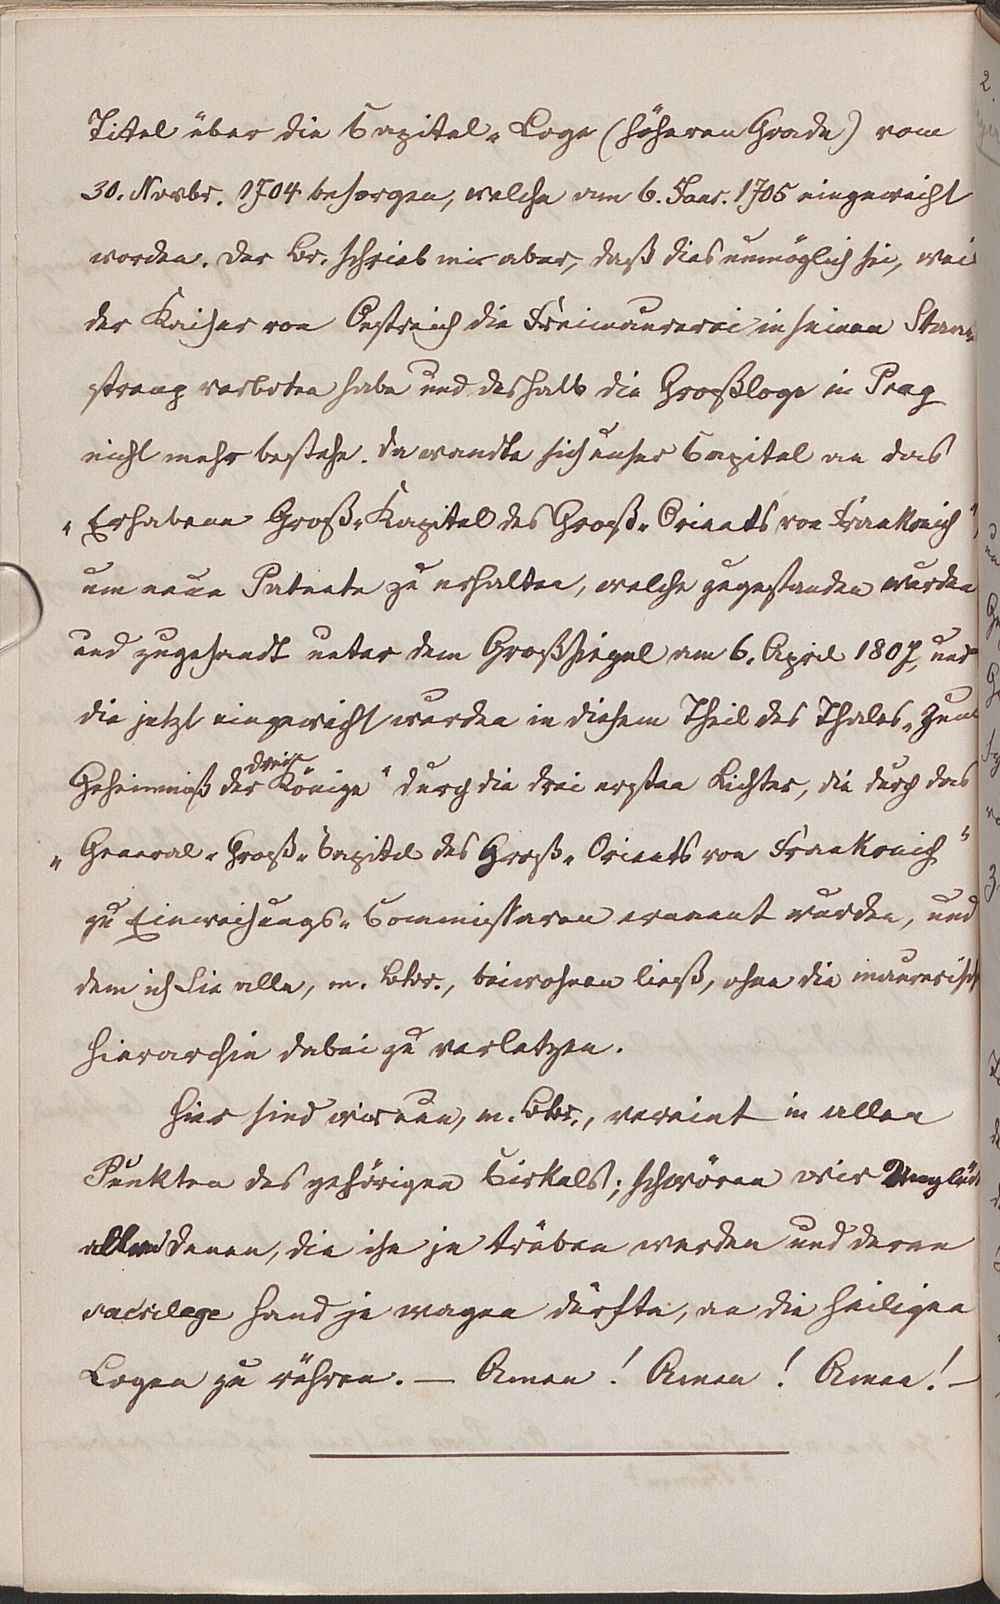 Titel über die Capitel-Loge (höheren Grade) vom
30. Novbr. 1704 besorgen, welche am 6. Janr. 1705 eingeweiht
worden. Der Br. schrieb mir aber, daß dies unmöglich sei, weil
der Kaiser von Oestreich die Freimaurerei in seinen Staa-
streng verboten habe und deshalb die Großloge in Prag
nicht mehr bestehe. Da wandte sich unser Capitel an das
„Erhabene Groß-Kapitel des Groß-Orients von Frankreich",
um neue Patente zu erhalten, welche zugestanden wurden
und zugesandt unter dem Großsiegel am 6. April 1807, und
die jetzt eingeweiht wurden in diesem Theil des Thales „Zum
Geheimniß der drei Könige" durch die drei ersten Lichter, die durch das
„General-Groß-Capitel des Groß-Orients von Frankreich"
zu Einweihungs-Commissaren ernannt wurden, und
dem ich Sie alle, m. Bbr., beiwohnen ließ, ohne die maurerisch
Hierarchie dabei zu verletzen.
Hier sind wir nun, m. Bbr., vereint in allen
Punkten des gehörigen Cirkels; schwören wir Unglück
allen denen, die ihn je trüben werden und deren
sacrilege Hand je wagen dürfte, an die heiligen
Logen zu rühren. — Amen! Amen! Amen! —